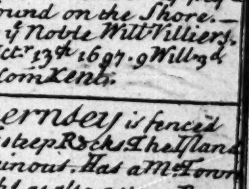 ound on the Shore.
ye Noble Will: Villiers.
Octr. 13th 1697. 9 Will. 3d
com Kent.
ernsey is fenced
steep Rocks The Island
unous. Has a Mt. Town